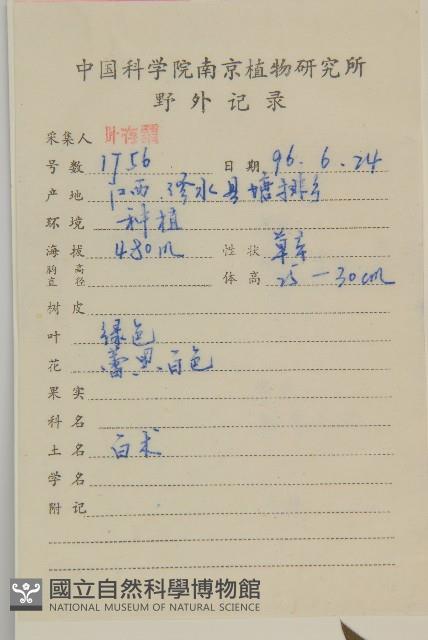 中国科学院南京植物研究所
野外记录
采集人 叶存粟
号数 1756 日期 96.6.24
产地 江西.修水县塘排乡
环境 种植
海拔 480m 性状 草本
胸高直径 体高 25—30cm
树皮
叶 绿色
花 蕾.果.白色
果实
科名
土名 白术
学名
附记
國立自然科學博物館
NATIONAL MUSEUM OF NATURAL SCIENCE